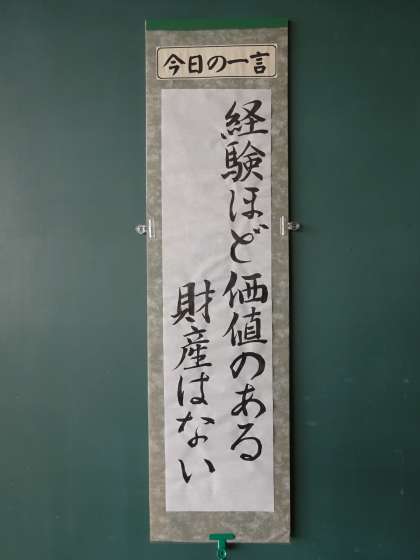 今日の一言
経験ほど価値のある
財産はない